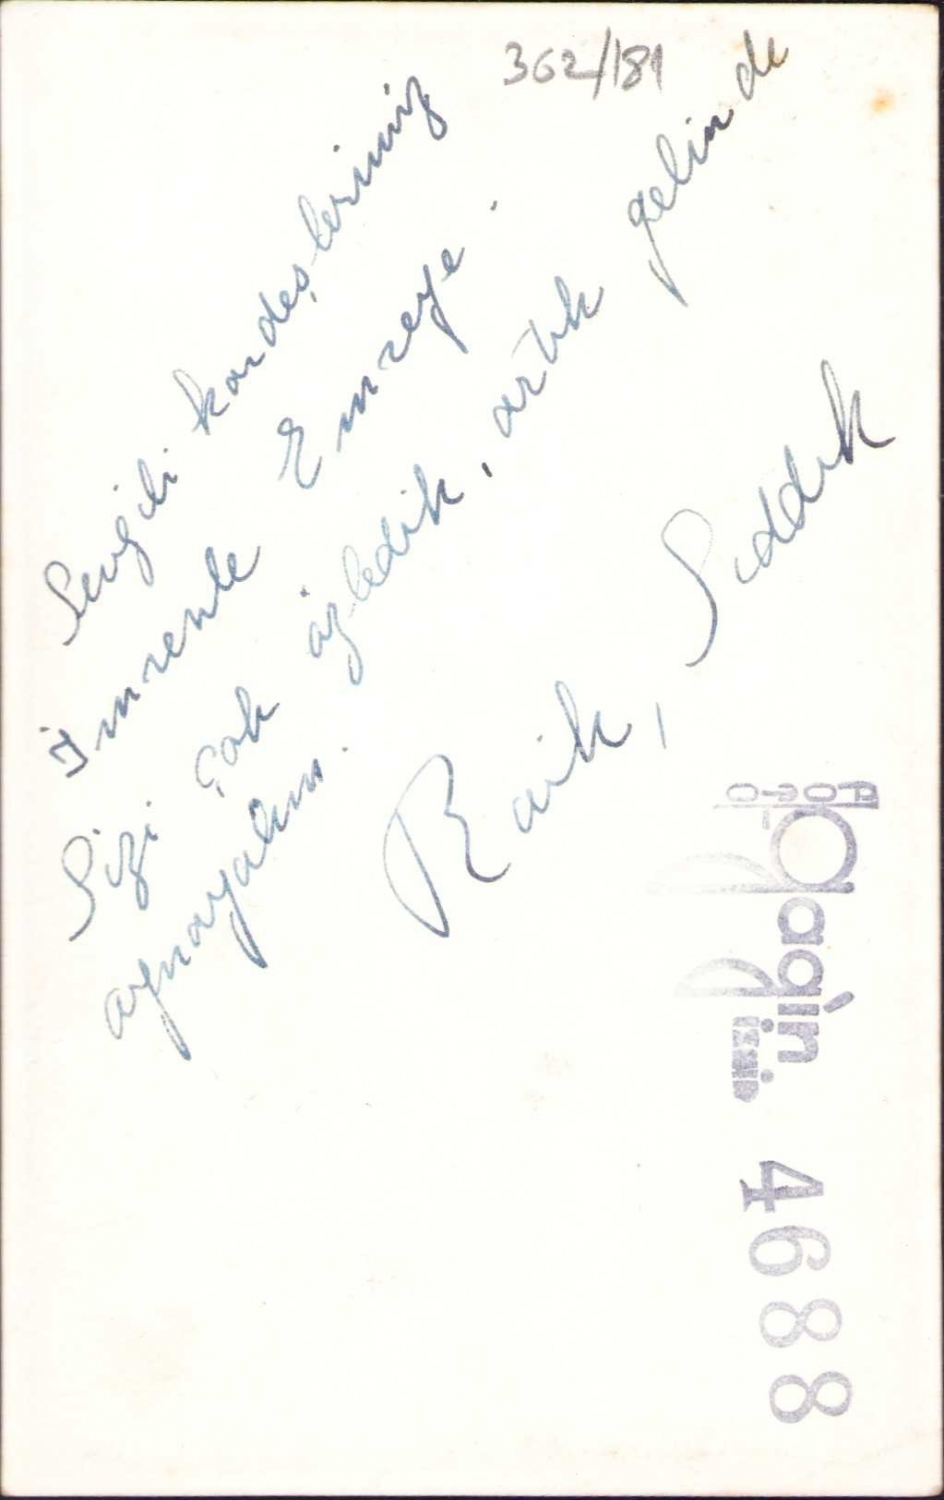 362/181
Sevgili kardeşlerimiz
İmrenle Emreye.
Sizi çok özledik, artık gelinde
aynayalım.
Raik, Sıddık
Foto
4688